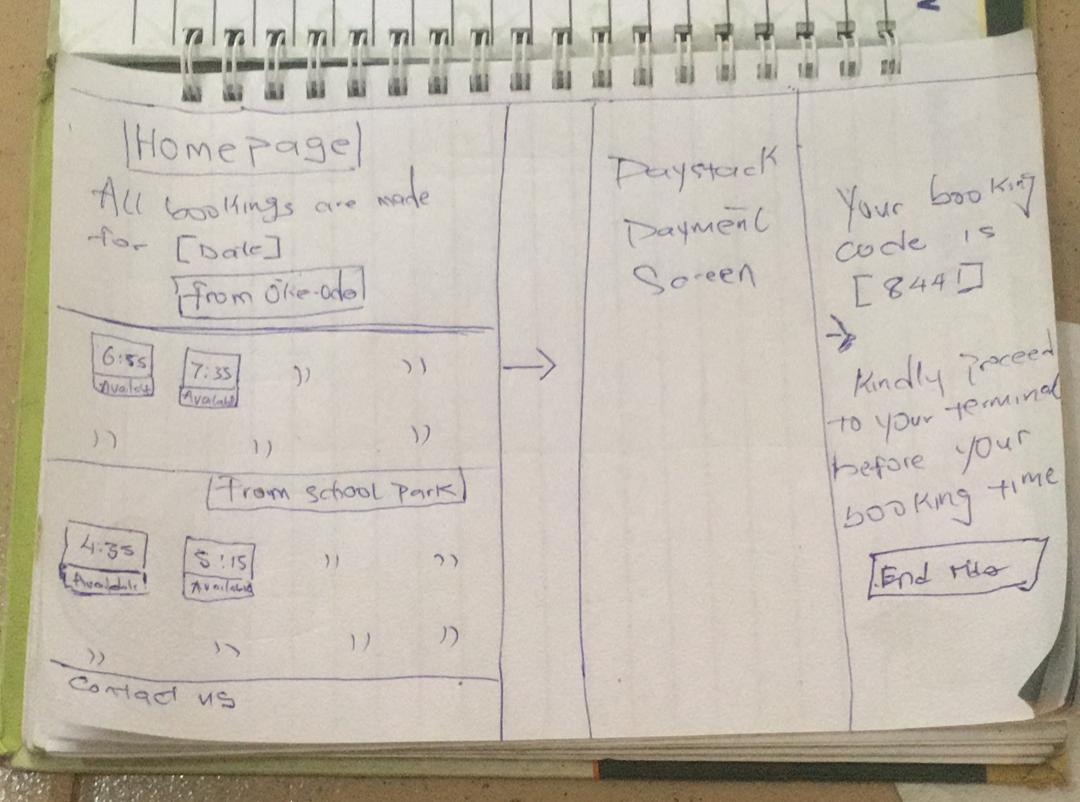 Homepage
All bookings are made
for [Date]
from Oke-Odo
6:55
7:35
Available
〃 〃
〃 〃 〃
from school park
4:35 5:15 〃 〃
Available Available
〃 〃 〃 〃
Contact us
Paystack
Payment
Screen
Your booking
code is
[8441]
Kindly proceed
to your terminal
before your
booking time
End ride